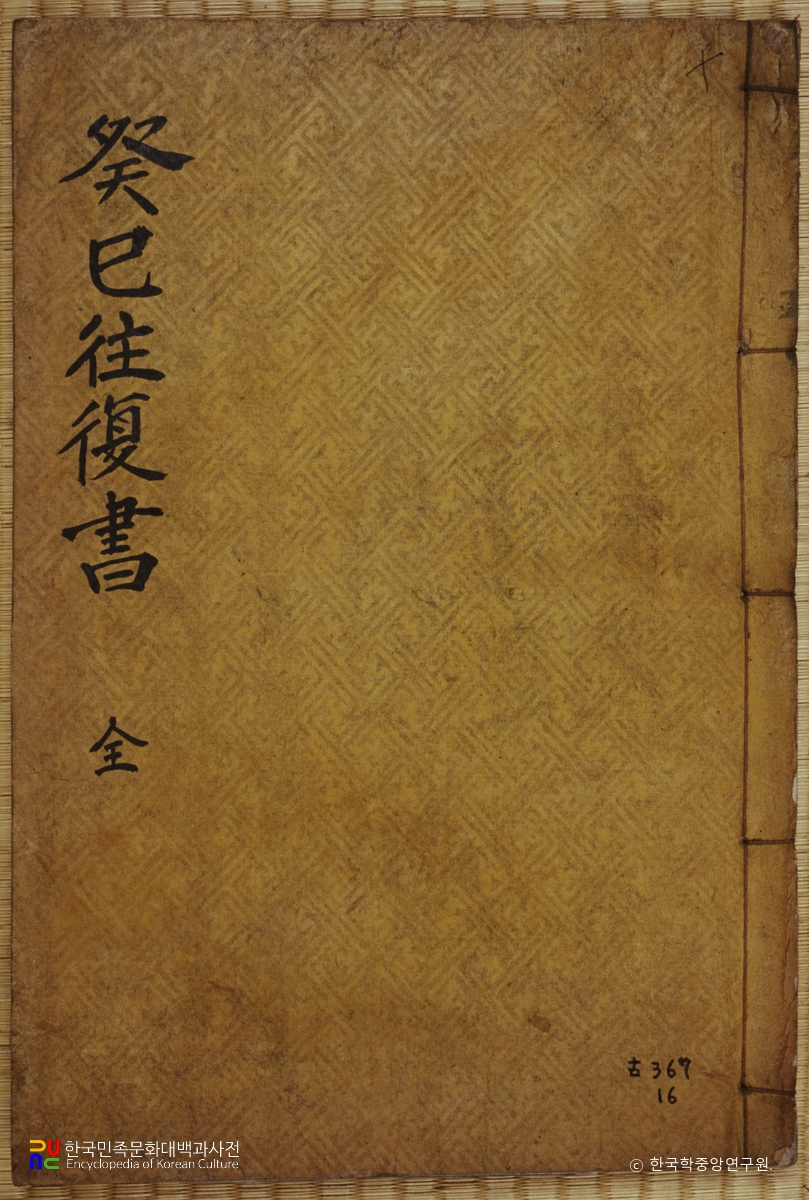 癸巳往復書 全
十
古 367
16
한국민족문화대백과사전
Encyclopedia of Korean Culture
ⓒ 한국학중앙연구원.